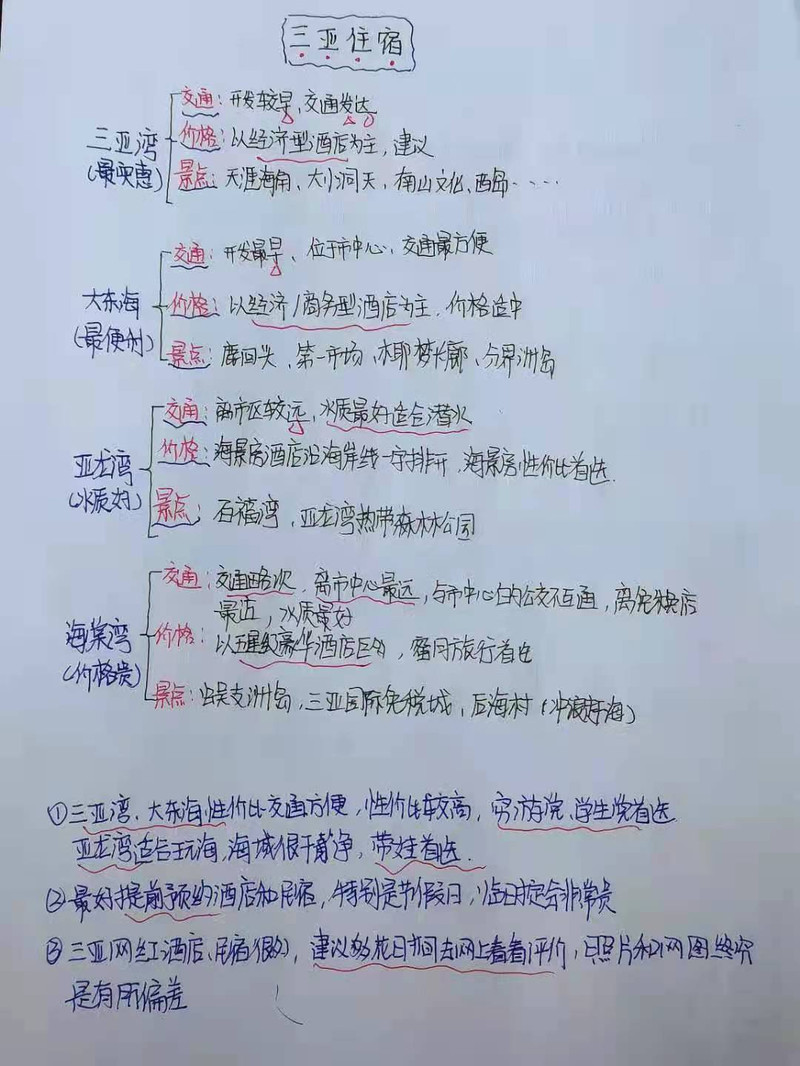 三亚住宿
三亚湾
(最实惠)
交通：开发较早、交通发达
价格：以经济型酒店为主，建议
景点：天涯海角、大小洞天、南山文化、西岛……
大东海
(最便利)
交通：开发最早、位于市中心、交通最方便
价格：以经济/商务型酒店为主，价格适中
景点：鹿回头、第一市场、椰梦长廊、分界洲岛
亚龙湾
(水质好)
交通：离市区较远，水质最好适合潜水
价格：海景房酒店沿海岸线一字排开，海景房性价比首选
景点：石福湾，亚龙湾热带森林公园
海棠湾
(价格贵)
交通：交通略次，离市中心最远，与市中心的公交不通，离免税店
最近，水质最好
价格：以五星级豪华酒店巨多，蜜月旅行首选
景点：蜈支洲岛，三亚国际免税城，后海村(冲浪赶海)
①三亚湾、大东海性价比交通方便，性价比较高，穷游党、学生党首选
亚龙湾适合玩海，海域很干静净，带娃首选.
②最好提前预约酒店和民宿，特别是节假日，临时定会非常贵
③三亚网红酒店、民宿很多，建议多花时间去网上看看评价，照片和网图终究
是有所偏差